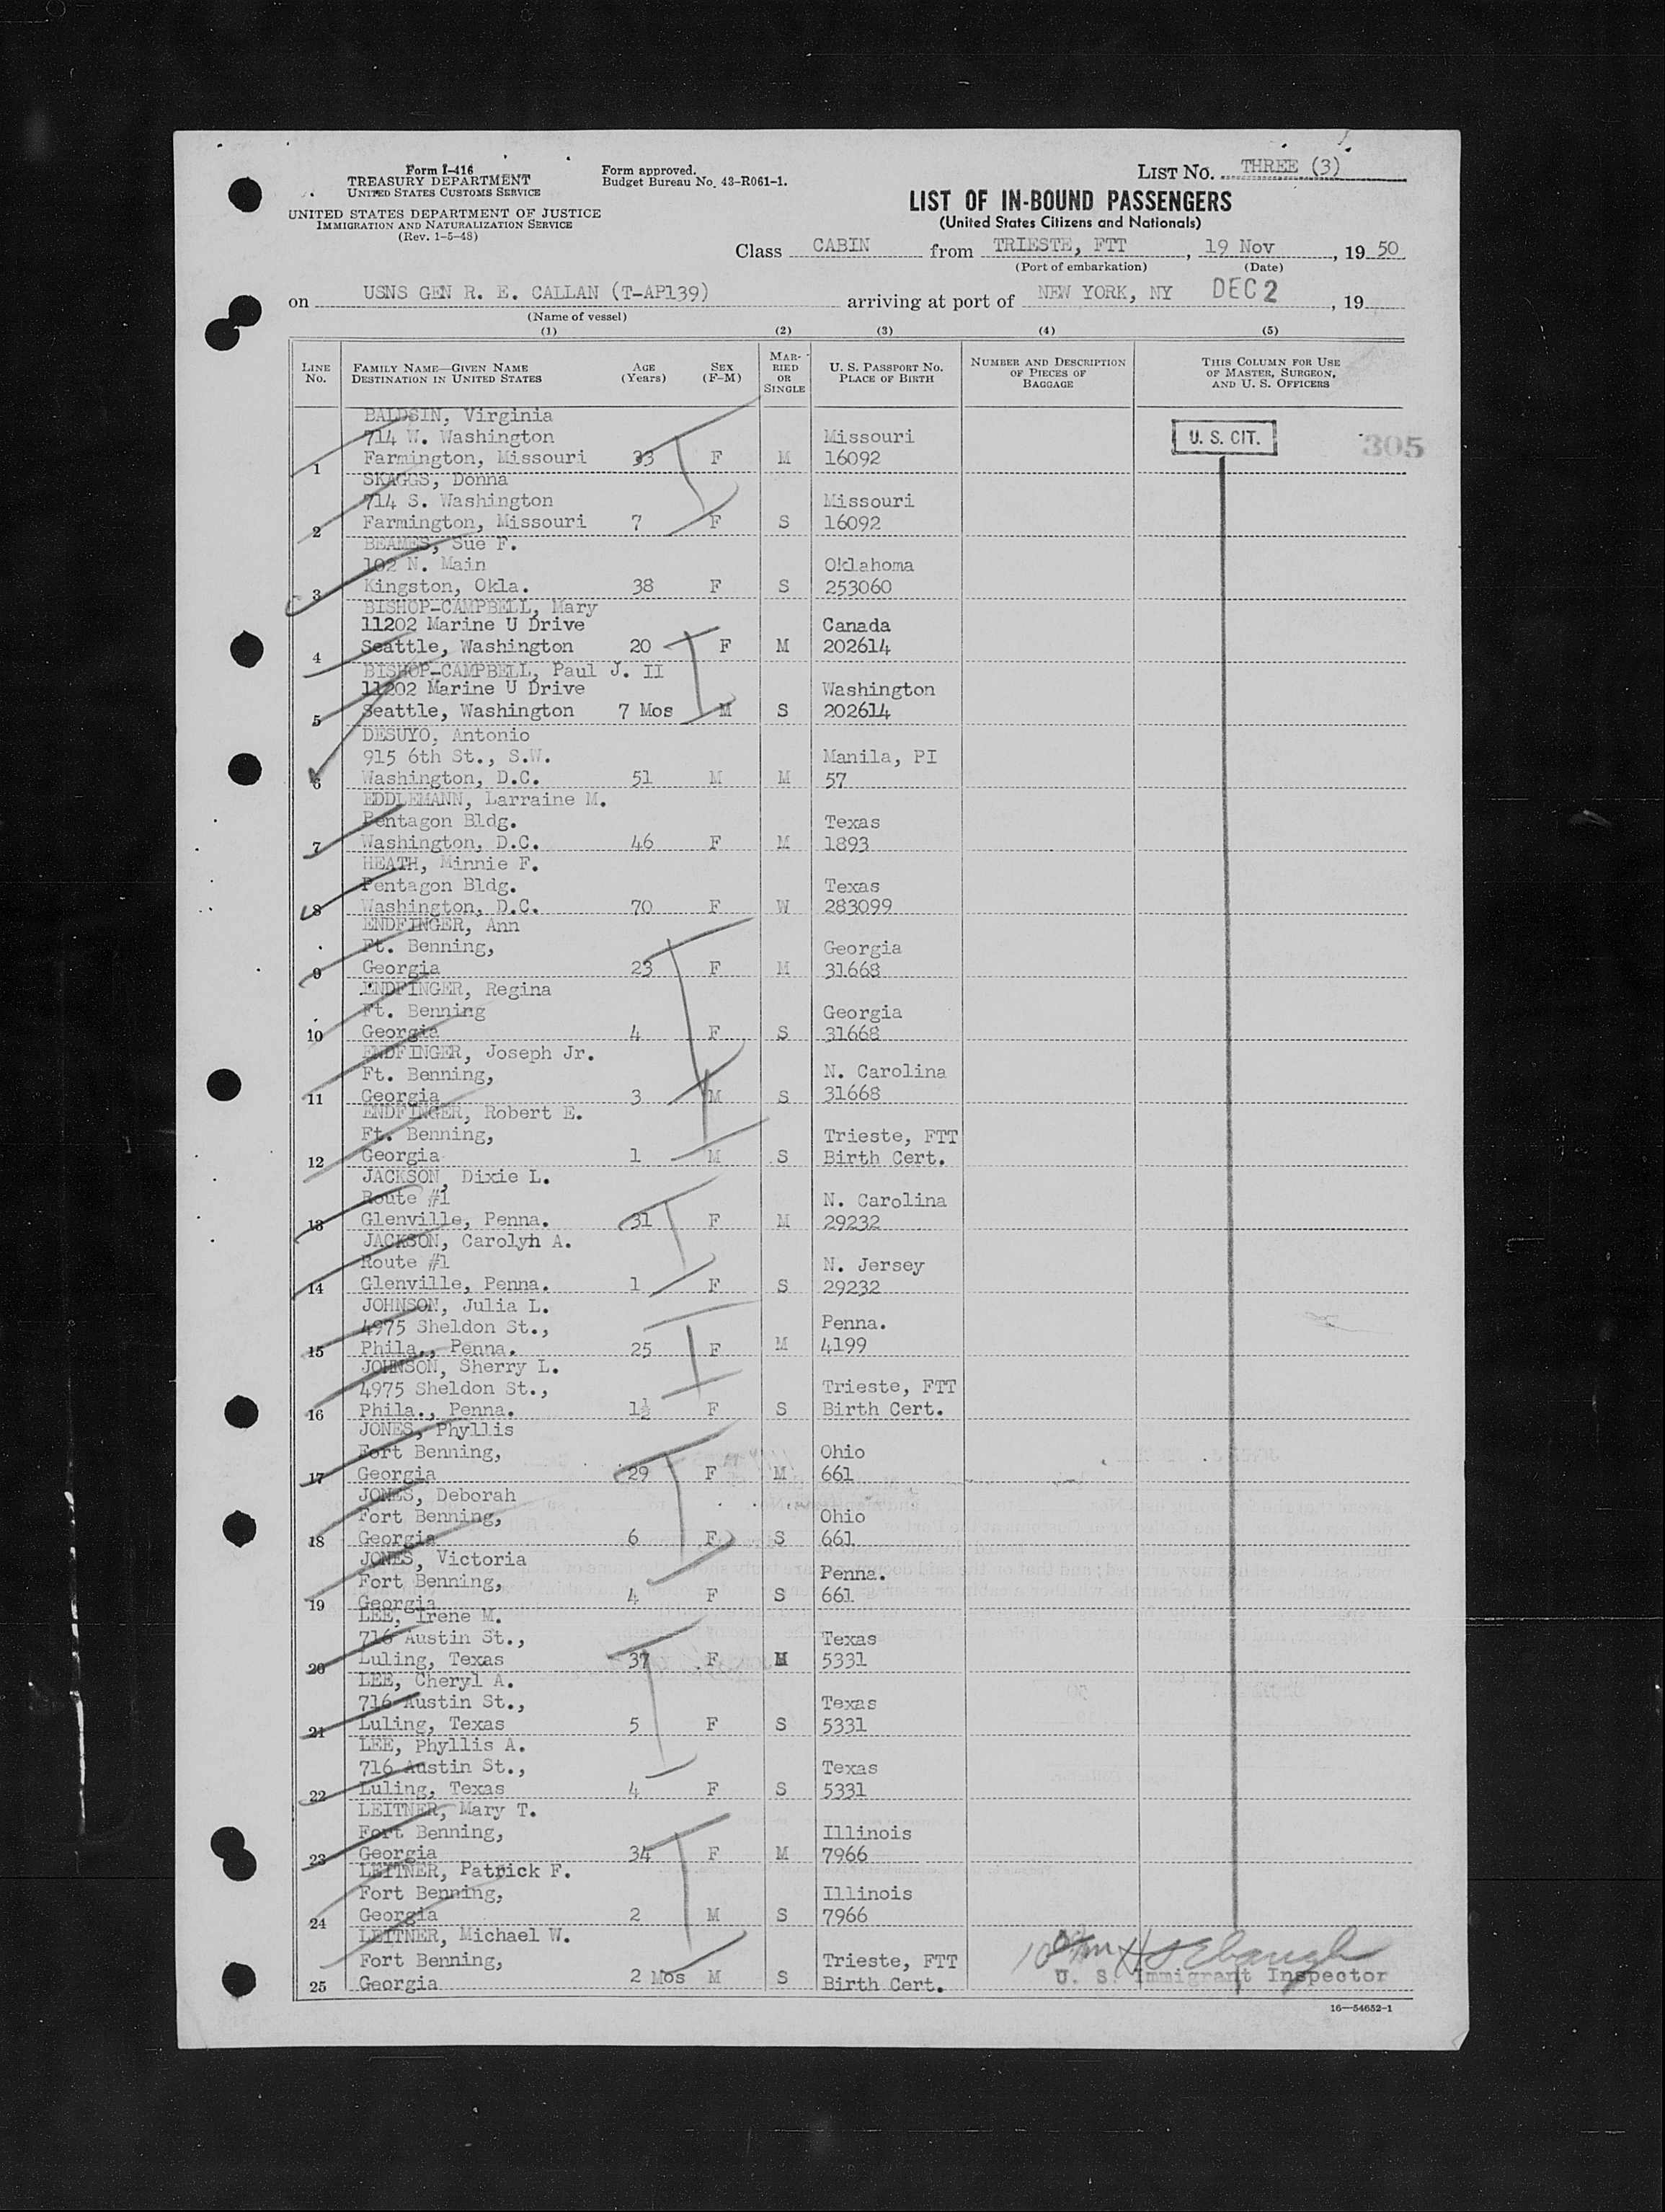 Form I-416
TREASURY DEPARTMENT
UNITED STATES CUSTOMS SERVICE
UNITED STATES DEPARTMENT OF JUSTICE
IMMIGRATION AND NATURALIZATION SERVICE
(Rev. 1-5-48)
Form approved.
Budget Bureau No. 43-R061-1.
LIST NO. THREE (3)
LIST OF IN-BOUND PASSENGERS
(United States Citizens and Nationals)
Class CABIN from TRIESTE, FTT, 19 Nov, 19 50
(Port of embarkation) (Date)
on USNS GEN R. E. CALLAN (T-AP139) arriving at port of NEW YORK, NY DEC 2, 19
(Name of vessel)
(1) (2) (3) (4) (5)
LINE NO. FAMILY NAME—GIVEN NAME DESTINATION IN UNITED STATES AGE (Years) SEX (F-M) MARRIED OR SINGLE U. S. PASSPORT NO. PLACE OF BIRTH NUMBER AND DESCRIPTION OF PIECES OF BAGGAGE THIS COLUMN FOR USE OF MASTER, SURGEON, AND U. S. OFFICERS
BALDSIN, Virginia
714 W. Washington Missouri U. S. CIT. 305
1 Farmington, Missouri 33 F M 16092
SKAGGS, Donna
714 S. Washington Missouri
2 Farmington, Missouri 7 F S 16092
BEAMES, Sue F.
102 N. Main Oklahoma
3 Kingston, Okla. 38 F S 253060
BISHOP-CAMPBELL, Mary
11202 Marine U Drive Canada
4 Seattle, Washington 20 F M 202614
BISHOP-CAMPBELL, Paul J. II
11202 Marine U Drive Washington
5 Seattle, Washington 7 Mos M S 202614
DESUYO, Antonio
915 6th St., S.W. Manila, PI
6 Washington, D.C. 51 M M 57
EDDLEMANN, Larraine M.
Pentagon Bldg. Texas
7 Washington, D.C. 46 F M 1893
HEATH, Minnie F.
Pentagon Bldg. Texas
8 Washington, D.C. 70 F W 283099
ENDFINGER, Ann
Ft. Benning, Georgia
9 Georgia 23 F M 31668
ENDFINGER, Regina
Ft. Benning Georgia
10 Georgia 4 F S 31668
ENDFINGER, Joseph Jr.
Ft. Benning, N. Carolina
11 Georgia 3 M S 31668
ENDFINGER, Robert E.
Ft. Benning, Trieste, FTT
12 Georgia 1 M S Birth Cert.
JACKSON, Dixie L.
Route #1 N. Carolina
13 Glenville, Penna. 31 F M 29232
JACKSON, Carolyn A.
Route #1 N. Jersey
14 Glenville, Penna. 1 F S 29232
JOHNSON, Julia L.
4975 Sheldon St., Penna.
15 Phila., Penna. 25 F M 4199
JOHNSON, Sherry L.
4975 Sheldon St., Trieste, FTT
16 Phila., Penna. 1½ F S Birth Cert.
JONES, Phyllis
Fort Benning, Ohio
17 Georgia 29 F M 661
JONES, Deborah
Fort Benning, Ohio
18 Georgia 6 F S 661
JONES, Victoria
Fort Benning, Penna.
19 Georgia 4 F S 661
LEE, Irene M.
716 Austin St., Texas
20 Luling, Texas 37 F M 5331
LEE, Cheryl A.
716 Austin St., Texas
21 Luling, Texas 5 F S 5331
LEE, Phyllis A.
716 Austin St., Texas
22 Luling, Texas 4 F S 5331
LEITNER, Mary T.
Fort Benning, Illinois
23 Georgia 34 F M 7966
LEITNER, Patrick F.
Fort Benning, Illinois
24 Georgia 2 M S 7966
LEITNER, Michael W.
Fort Benning, Trieste, FTT
25 Georgia 2 Mos M S Birth Cert. U. S. Immigrant Inspector
16—54652-1